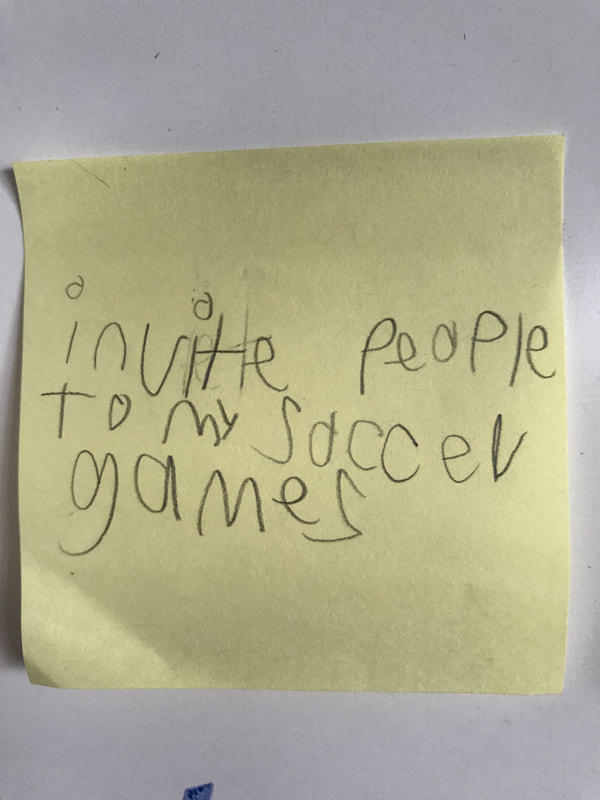 invite people
to my soccer
games